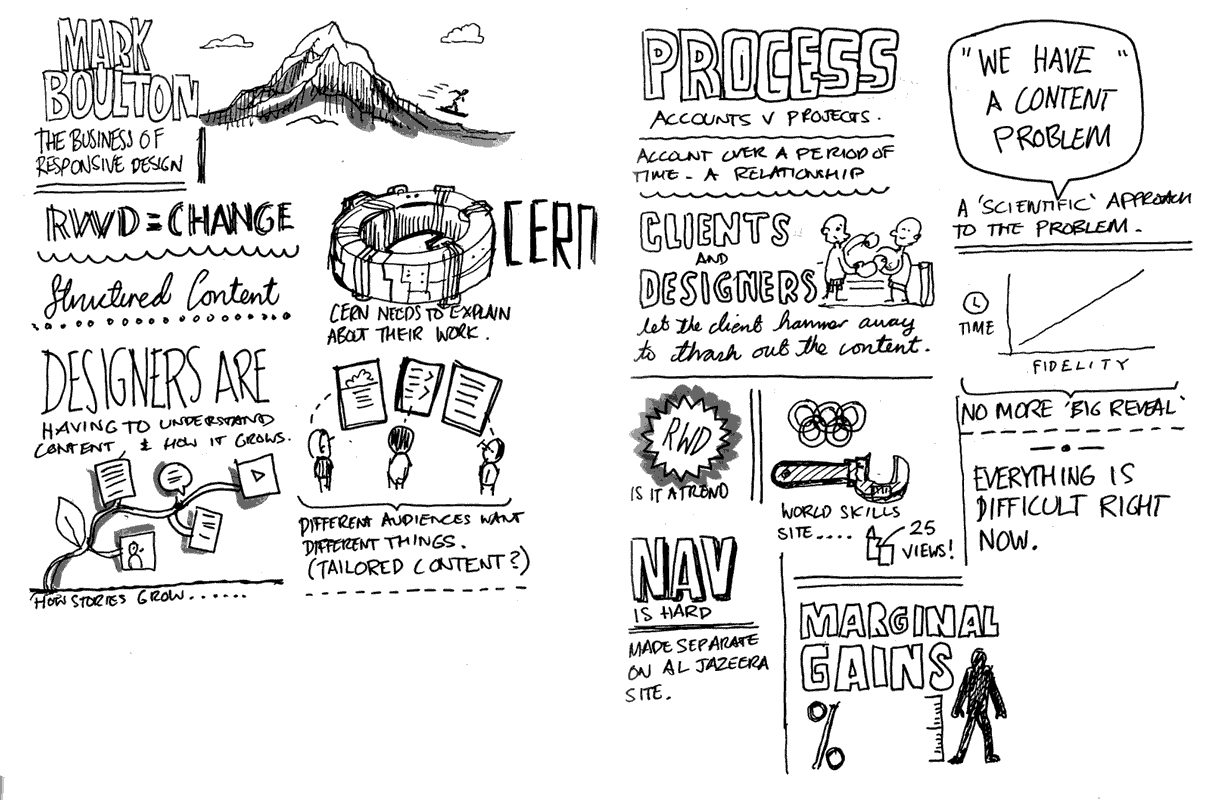 MARK
BOULTON
THE BUSINESS OF
RESPONSIVE DESIGN
RWD = CHANGE
Structured Content
DESIGNERS ARE
HAVING TO UNDERSTAND
CONTENT & HOW IT GROWS.
HOW STORIES GROW.......
CERN
CERN NEEDS TO EXPLAIN
ABOUT THEIR WORK.
DIFFERENT AUDIENCES WANT
DIFFERENT THINGS.
(TAILORED CONTENT?)
PROCESS
ACCOUNTS V PROJECTS.
ACCOUNT OVER A PERIOD OF
TIME - A RELATIONSHIP
CLIENTS
AND
DESIGNERS
let the client hammer away
to thrash out the content.
RWD
IS IT A TREND
NAV
IS HARD
MADE SEPARATE
ON AL JAZEERA
SITE.
WORLD SKILLS
SITE....
25
VIEWS!
MARGINAL
GAINS
%
"WE HAVE "
A CONTENT
PROBLEM
A 'SCIENTIFIC' APPROACH
TO THE PROBLEM.
TIME
FIDELITY
NO MORE 'BIG REVEAL'
EVERYTHING IS
DIFFICULT RIGHT
NOW.